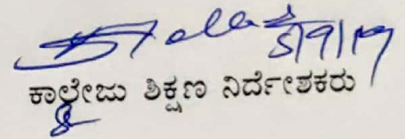 5/9/19
ಕಾಲೇಜು ಶಿಕ್ಷಣ ನಿರ್ದೇಶಕರು